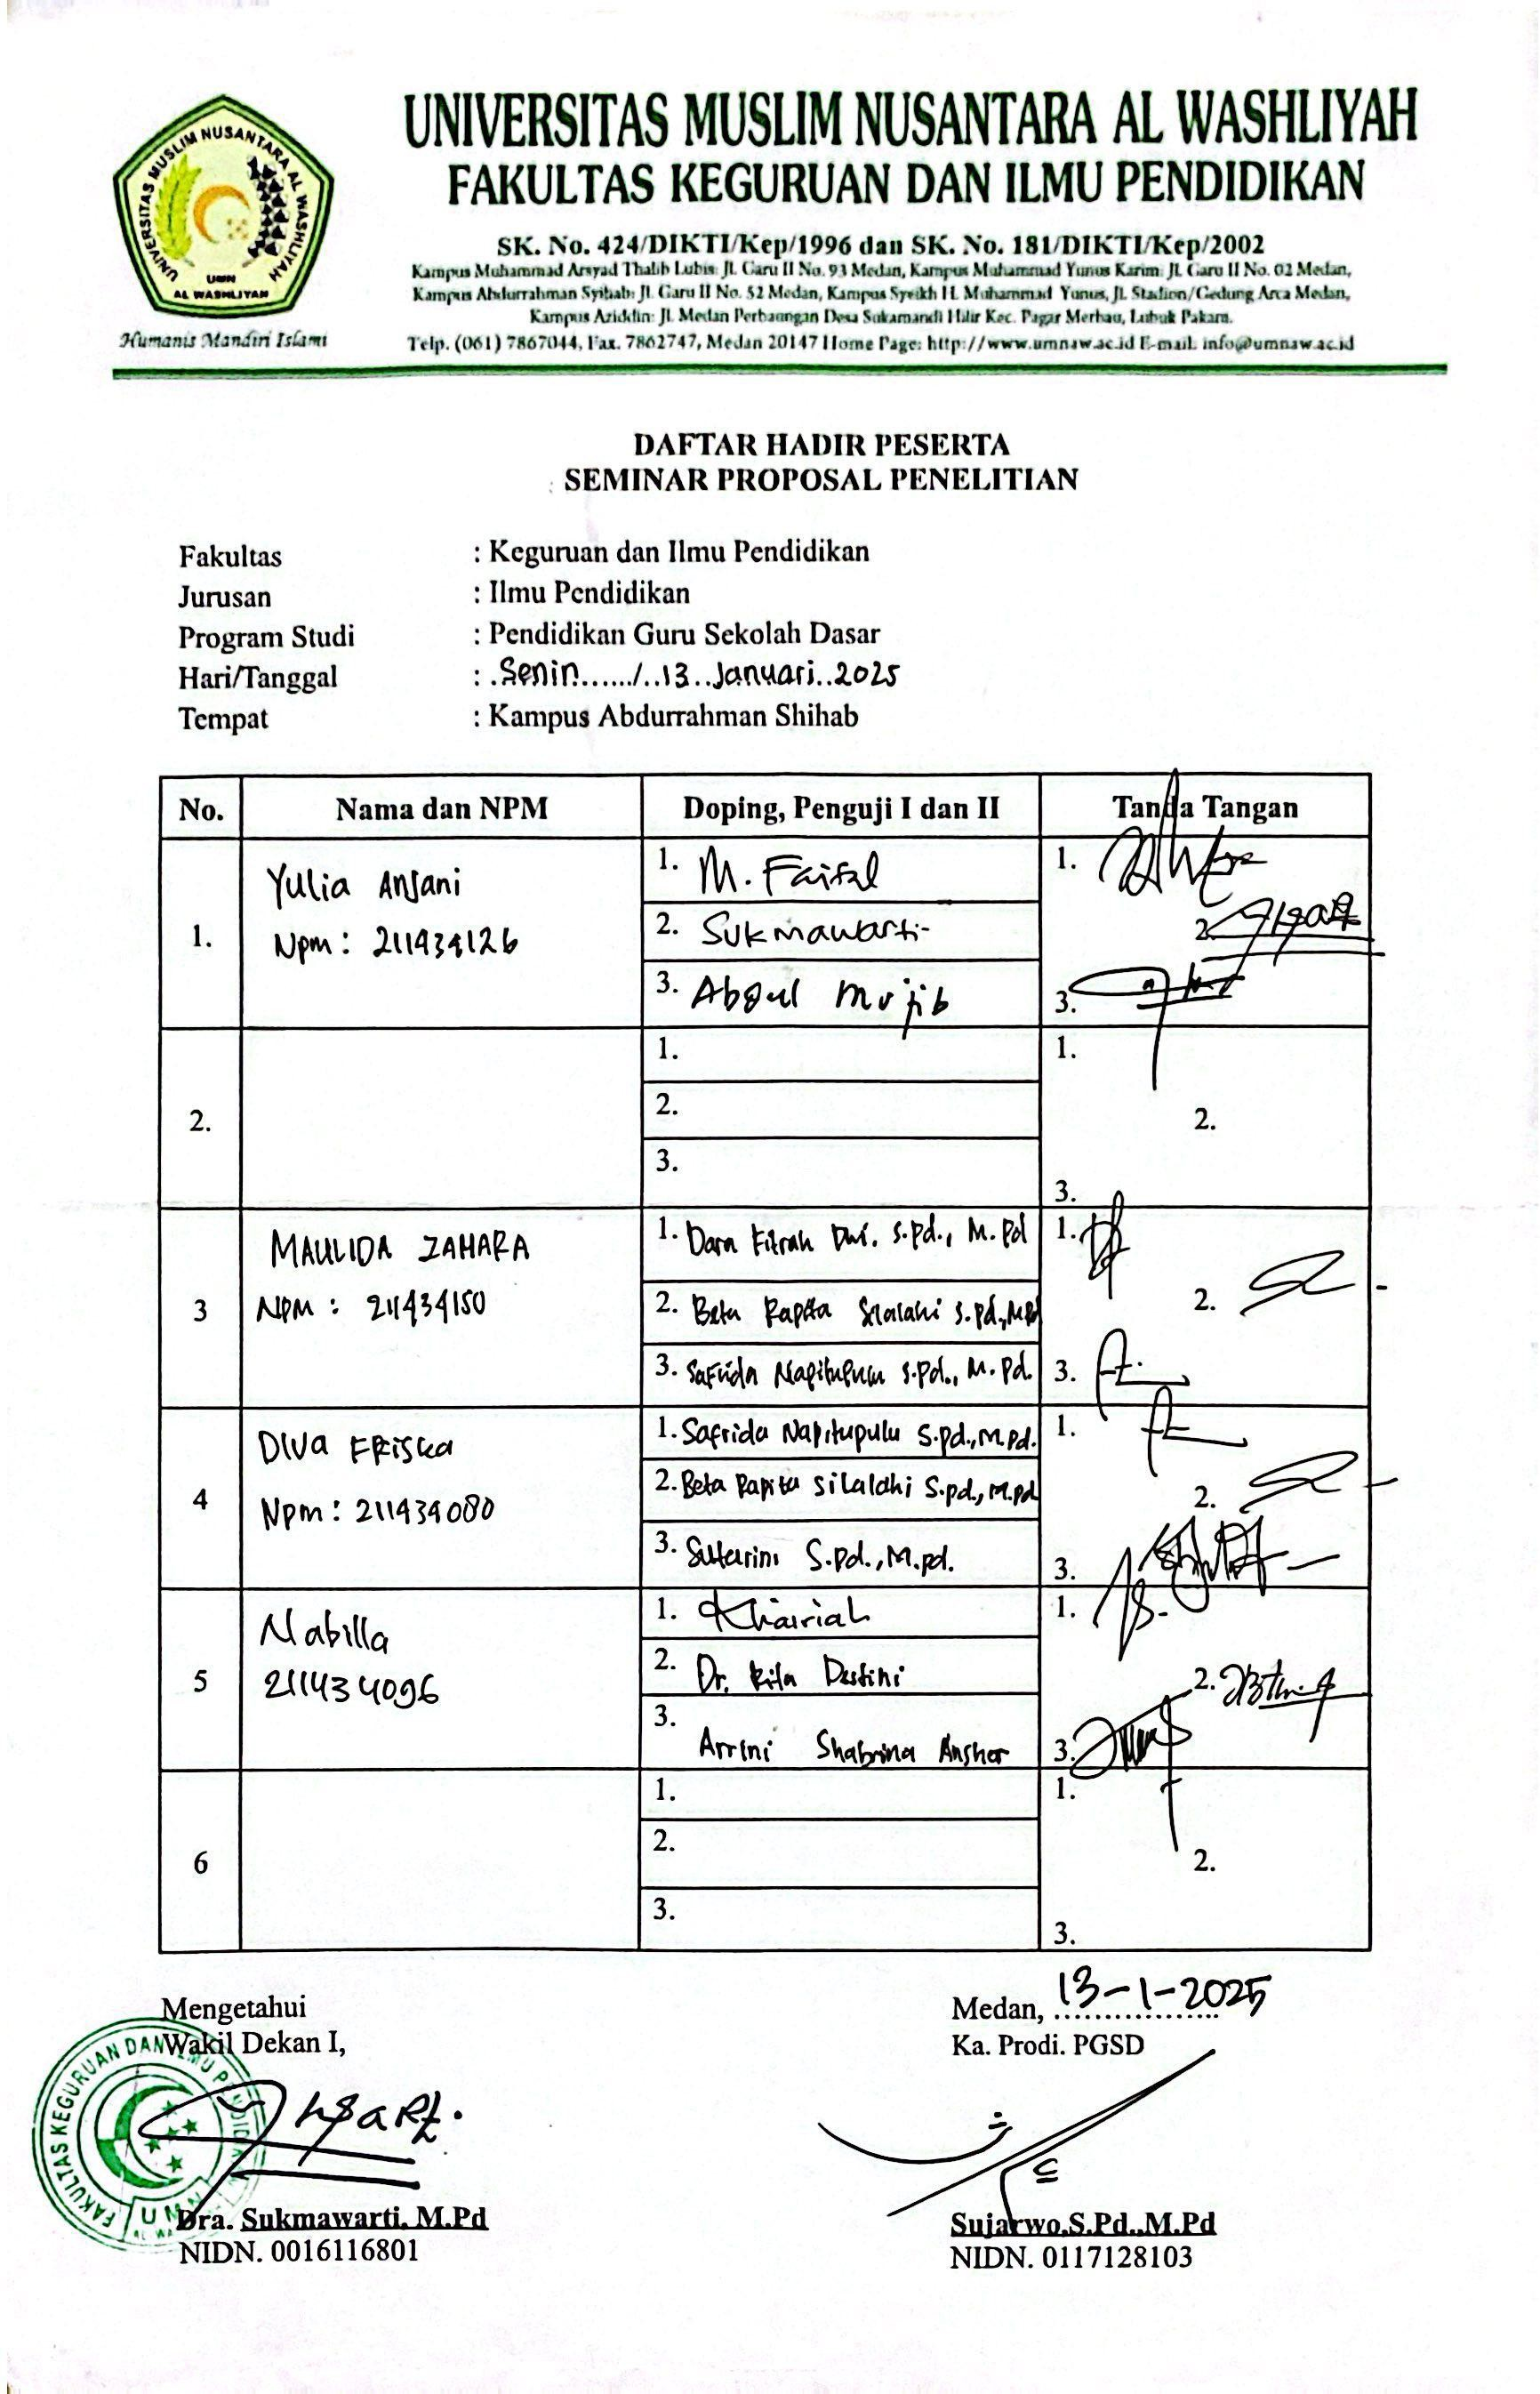 UNIVERSITAS MUSLIM NUSANTARA AL WASHLIYAH
UMN
AL WASHLIYAH
Humanis Mandiri Islami
UNIVERSITAS MUSLIM NUSANTARA AL WASHLIYAH
FAKULTAS KEGURUAN DAN ILMU PENDIDIKAN
SK. No. 424/DIKTI/Kep/1996 dan SK. No. 181/DIKTI/Kep/2002
Kampus Muhammad Arsyad Thalib Lubis: Jl. Garu II No. 93 Medan, Kampus Muhammad Yunus Karim: Jl. Garu II No. 02 Medan,
Kampus Abdurrahman Syihab: Jl. Garu II No. 52 Medan, Kampus Syeikh H. Muhammad Yunus, Jl. Stadion/Gedung Arca Medan,
Kampus Aziddin: Jl. Medan Perbaungan Desa Sukamandi Hilir Kec. Pagar Merbau, Lubuk Pakam.
Telp. (061) 7867044, Fax. 7862747, Medan 20147 Home Page: http://www.umnaw.ac.id E-mail: info@umnaw.ac.id
DAFTAR HADIR PESERTA
SEMINAR PROPOSAL PENELITIAN
Fakultas : Keguruan dan Ilmu Pendidikan
Jurusan : Ilmu Pendidikan
Program Studi : Pendidikan Guru Sekolah Dasar
Hari/Tanggal : .Senin....../..13..Januari..2025
Tempat : Kampus Abdurrahman Shihab
No. Nama dan NPM Doping, Penguji I dan II Tanda Tangan
1. Yulia Anjani
Npm : 211434126
1. M. Faisal
2. Sukmawarti
3. Abdul Mujib
1.
2.
3.
2.
1.
2.
3.
1.
2.
3.
3 MAULIDA ZAHARA
NPM : 211434150
1. Dara Fitrah Dwi. S.Pd., M.Pd
2. Beta Rapita Silalahi S.Pd., M.Pd
3. Safrida Napitupulu S.Pd., M.Pd.
1.
2.
3.
4 Diva Friska
Npm : 211434080
1. Safrida Napitupulu S.Pd., M.Pd.
2. Beta Rapita Silalahi S.Pd., M.Pd
3. Sutarini S.Pd., M.Pd.
1.
2.
3.
5 Nabilla
211434096
1. Khairiah
2. Dr. Rita Destini
3. Arrini Shabrina Anshor
1.
2.
3.
6
1.
2.
3.
1.
2.
3.
Mengetahui
Wakil Dekan I,
FAKULTAS KEGURUAN DAN ILMU PENDIDIKAN
UMN
AL WA
Dra. Sukmawarti, M.Pd
NIDN. 0016116801
Medan, 13-1-2025
Ka. Prodi. PGSD
Sujarwo,S.Pd.,M.Pd
NIDN. 0117128103